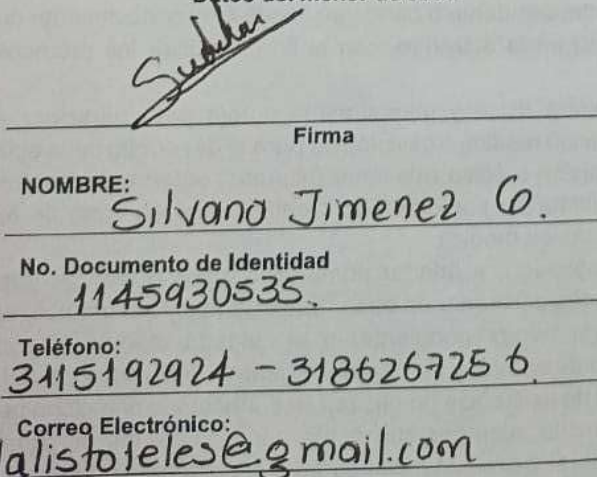 Firma
NOMBRE:
Silvano Jimenez G.
No. Documento de Identidad
1145930535.
Teléfono:
3115192924 - 3186267256.
Correo Electrónico:
alistoteles@gmail.com